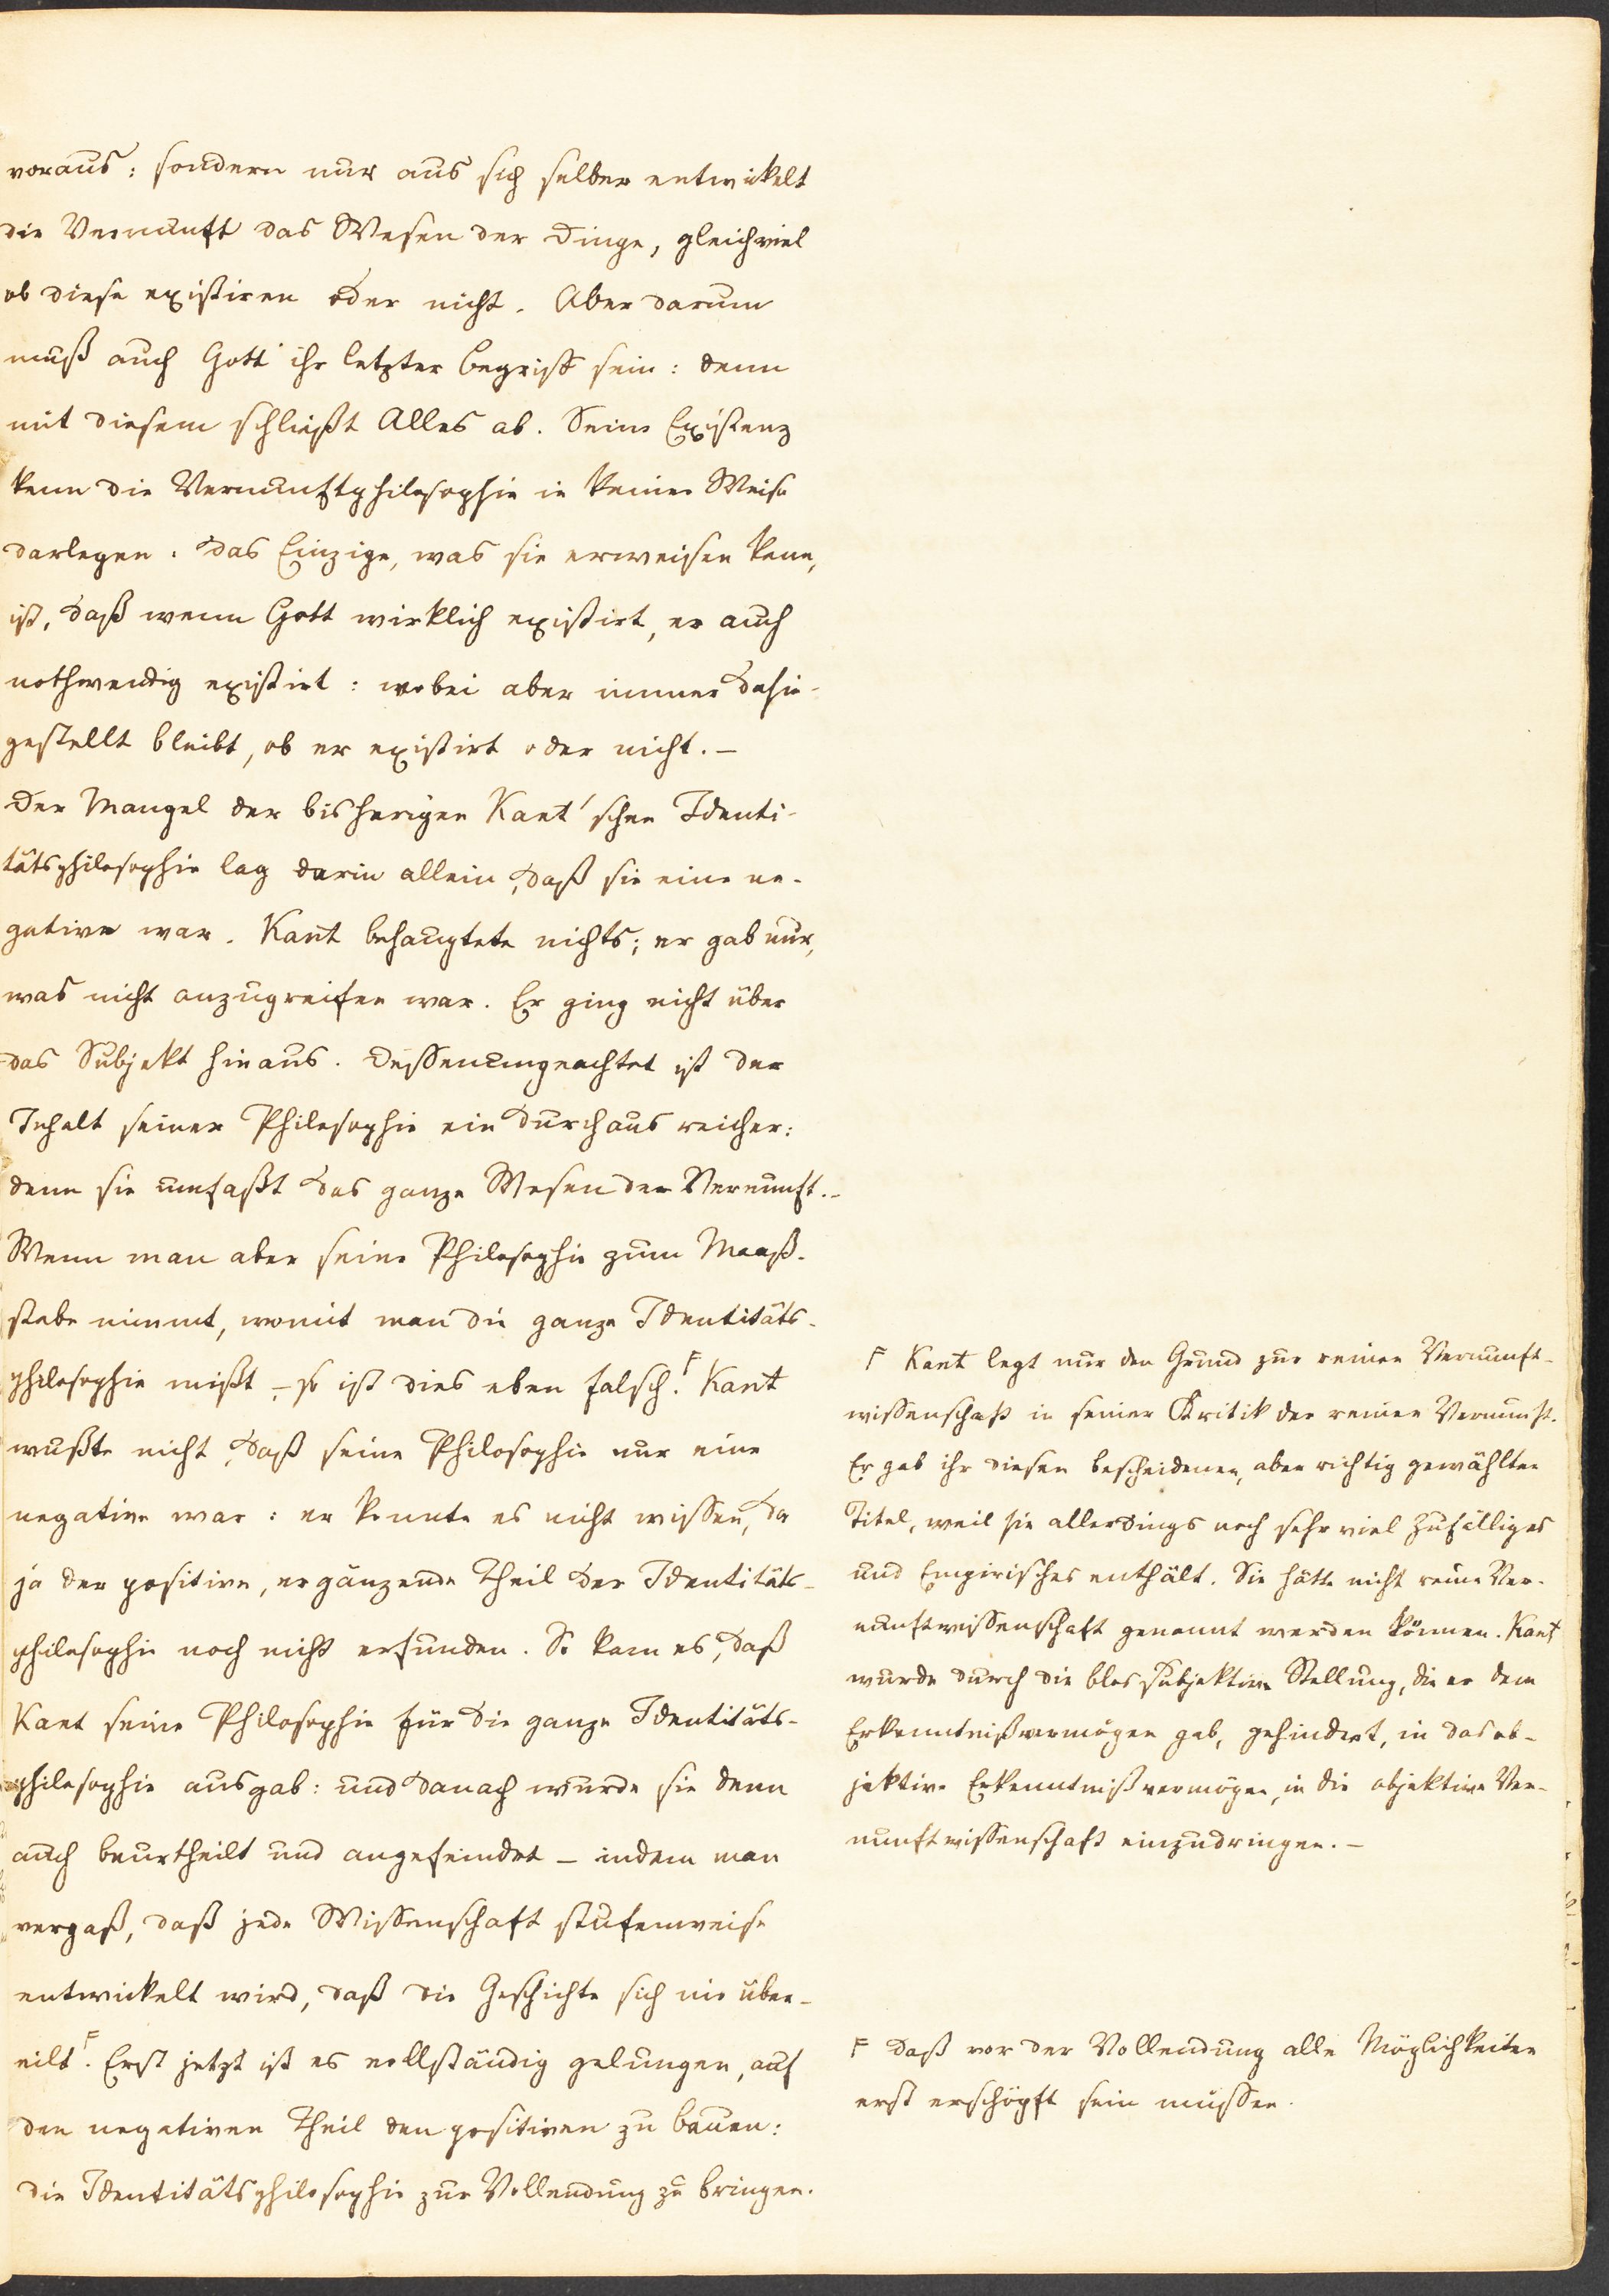 voraus: sondern nur aus sich selber entwikelt
die Vernunft das Wesen der Dinge, gleichviel
ob diese existiren oder nicht. Aber darum
muß auch Gott ihr letzter Begriff sein: denn
mit diesem schließt Alles ab. Seine Existenz
kann die Vernunftphilosophie in keiner Weise
darlegen: das Einzige, was sie erweisen kann,
ist, daß wenn Gott wirklich existirt, er auch
nothwendig existirt: wobei aber immer dahin-
gestellt bleibt, ob er existirt oder nicht. –
Der Mangel der bisherigen Kant'schen Identi-
tätsphilosophie lag darin allein, daß sie eine ne-
gative war. Kant behauptete nichts; er gab nur,
was nicht anzugreifen war. Er ging nicht über
das Subjekt hinaus. Dessenungeachtet ist der
Inhalt seiner Philosophie ein durchaus reicher:
denn sie umfaßt das ganze Wesen der Vernunft. –
Wenn man aber seine Philosophie zum Maaß-
stabe nimmt, womit man die ganze Identitäts-
philosophie mißt, – so ist dies eben falsch. F Kant
wußte nicht, daß seine Philosophie nur eine
negative war: er konnte es nicht wissen, da
ja der positive, ergänzende Theil der Identitäts-
philosophie noch nicht erfunden. So kam es, daß
Kant seine Philosophie für die ganze Identitäts-
philosophie ausgab: und danach wurde sie denn
auch beurtheilt und angefeindet – indem man
vergaß, daß jede Wissenschaft stufenweise
entwickelt wird, daß die Geschichte sich nie über-
eilt F. Erst jetzt ist es vollständig gelungen, auf
den negativen Theil den positiven zu bauen:
die Identitätsphilosophie zur Vollendung zu bringen.
F Kant legt nur den Grund zur reinen Vernunft-
wissenschaft in seiner Kritik der reinen Vernunft.
Er gab ihr diesen bescheidenen, aber richtig gewählten
Titel, weil sie allerdings noch sehr viel Zufälliges
und Empirisches enthält. Sie hätte nicht reine Ver-
nunftwissenschaft genannt werden können. Kant
wurde durch die blos subjektive Stellung, die er dem
Erkenntnißvermögen gab, gehindert, in das ob-
jektive Erkenntnißvermögen, in die objektive Ver-
nunftwissenschaft einzudringen. –
F daß vor der Vollendung alle Möglichkeiten
erst erschöpft sein müssen.